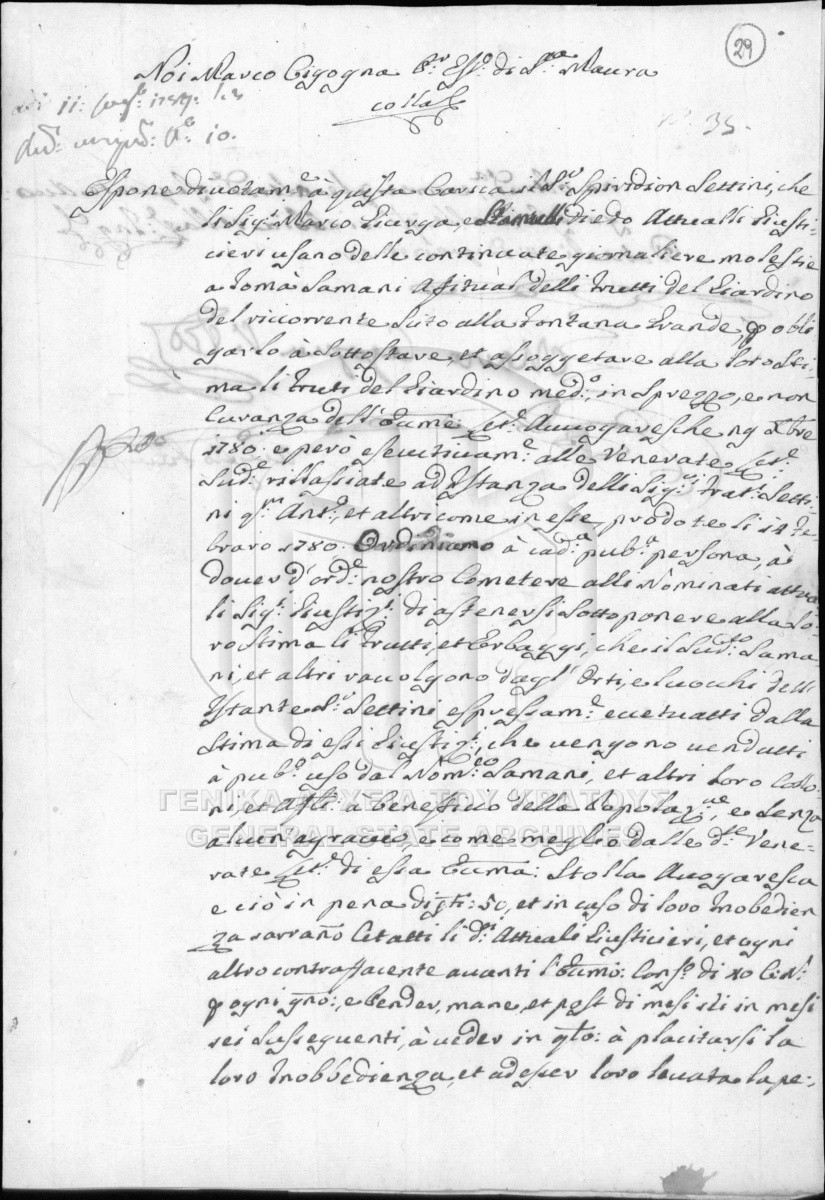 29
Noi Marco Cigogna Pr. Esso. di Sta. Maura
colla
adi 11:
No. 35.
10.
Espone divotame. à questa Carica il Sr. Spiridion Settini, che
li Sigri. Marco Ziurga, e Stamulli Diedo Attualli Giusti-
cieri usano delle continuate giornaliere molestie
a Tomà Samani Afitual delli frutti del Giardino
del riccorrente sito alla Fontana Grande, p obli
garlo à sottostare, et assoggetare alla loro sti-
ma li fruti del Giardino medo. in sprezzo, e non
curanza dell' Avogaresche
1780. e però esecutivame. alle Venerate
sude. rillassiate ad Istanza delli Sigri. Settini
qm Ant., et altri come in esse, prodotte li 14 fe-
braro 1780. Ordiniamo à cada. puba. persona, à
dover d'orde. nostro cometere alli nominati attua
li Sigri. Giustizri. di astenersi sottoponere alla lo-
ro stima li frutti, et Erbaggi, che il sudto. Sama
ni, et altri raccolgono dagl' Orti, e luochi dell
Istante Sr. Settini espressame. eccetuatti dalla
stima di essi Giustizri, che vengono vendutti
à pubo. uso dal nomto. Samani, et altri loro Collo-
ni, et Affli. à beneficio della Popolazne., e senza
alcun agravio e come meglio dalle dte. Vene-
rate di essa Stolla Avogaresca
e ciò in pena di 50, et in caso di loro Inobedien
za sarrano Cetatti li dti. Attuali Giusticieri, et ogni
altro contraffacente avanti l' Conso. di XL Civl.
p ogni gno: e bender, mane, et post di mesi sei in mesi
sei susseguenti, à veder in qto: à placitarsi la
loro Inobbedienza, et ad esser loro levata la pe-
ΓΕΝΙΚΑ ΑΡΧΕΙΑ ΤΟΥ ΚΡΑΤΟΥΣ
GENERAL STATE ARCHIVES